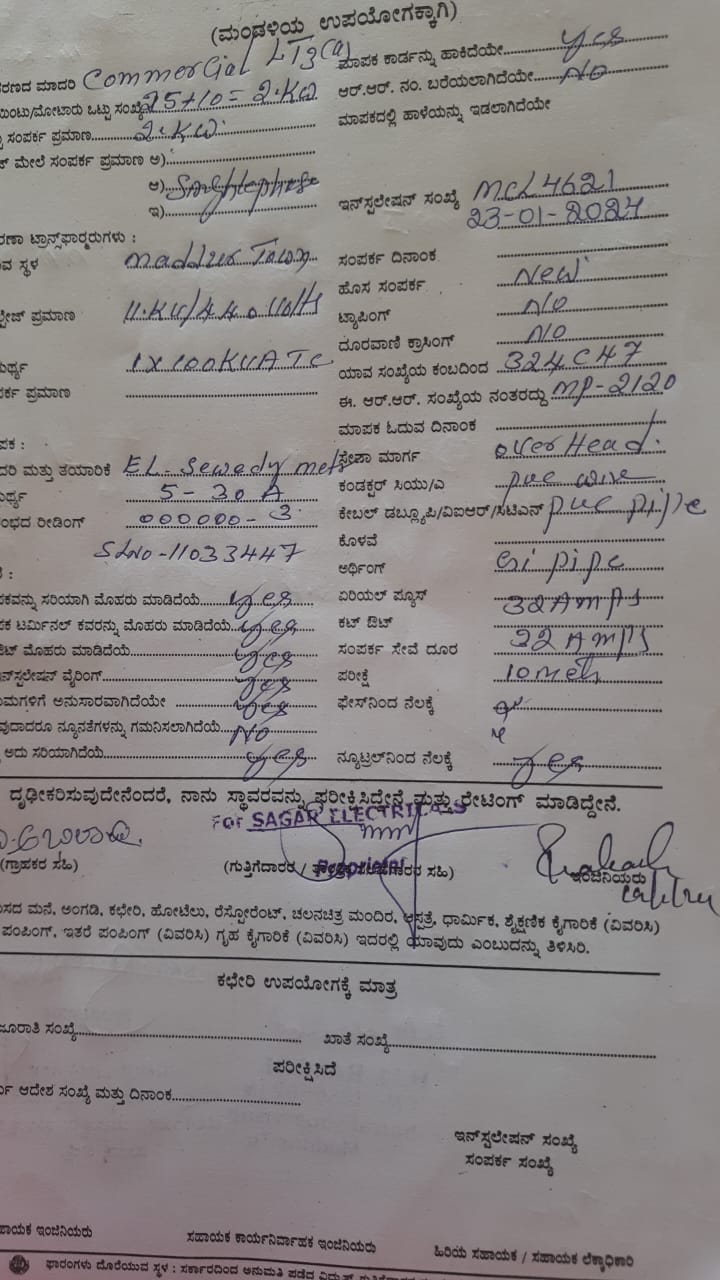 (ಮಂಡಳಿಯ ಉಪಯೋಗಕ್ಕಾಗಿ)
ರಣದ ಮಾದರಿ Commercial LT3(a)
ಮಾಪಕ ಕಾರ್ಡನ್ನು ಹಾಕಿದೆಯೇ Yes
ಯಿಂಟು/ಮೋಟಾರು ಒಟ್ಟು ಸಂಖ್ಯೆ 25+10= 2.KW
ಆರ್.ಆರ್. ನಂ. ಬರೆಯಲಾಗಿದೆಯೇ NO
ಸಂಪರ್ಕ ಪ್ರಮಾಣ 2.KW.
ಮಾಪಕದಲ್ಲಿ ಹಾಳೆಯನ್ನು ಇಡಲಾಗಿದೆಯೇ
ಮೇಲೆ ಸಂಪರ್ಕ ಪ್ರಮಾಣ ಅ)
ಆ)
ಇನ್‌ಸ್ಟಲೇಷನ್ ಸಂಖ್ಯೆ MCL4621
ಇ)
23-01-2024
ರಣಾ ಟ್ರಾನ್ಸ್‌ಫಾರ್ಮರುಗಳು :
ವ ಸ್ಥಳ Maddur Town
ಸಂಪರ್ಕ ದಿನಾಂಕ
ಹೊಸ ಸಂಪರ್ಕ New
ಲ್ಟೇಜ್ ಪ್ರಮಾಣ 11.KV/440 Volts
ಟ್ಯಾಪಿಂಗ್ NO
ದೂರವಾಣಿ ಕ್ರಾಸಿಂಗ್ NO
ಮರ್ಥ್ಯ 1X100KVA TC
ಯಾವ ಸಂಖ್ಯೆಯ ಕಂಬದಿಂದ 324C47
ರ್ಕ ಪ್ರಮಾಣ
ಈ. ಆರ್.ಆರ್. ಸಂಖ್ಯೆಯ ನಂತರದ್ದು MP-2120
ಮಾಪಕ ಓದುವ ದಿನಾಂಕ
ಪಕ :
ದರಿ ಮತ್ತು ತಯಾರಿಕೆ EL-Sewedy
ಸ್ಥೇಪಾ ಮಾರ್ಗ over Head.
ಮರ್ಥ್ಯ 5-30A
ಕಂಡಕ್ಟರ್ ಸಿಯು/ಎ pvc wire
ಂಭದ ರೀಡಿಂಗ್ 000000-3
ಕೇಬಲ್ ಡಬ್ಲ್ಯೂಪಿ/ವಿಐಆರ್/ಸಟಿಎನ್ pvc pipe
SLNO-11033447
ಕೊಳವೆ
ಅರ್ಥಿಂಗ್ Gi pipe
ಪಕವನ್ನು ಸರಿಯಾಗಿ ಮೊಹರು ಮಾಡಿದೆಯೆ Yes
ಏರಿಯಲ್ ಪ್ಯೂಸ್ 32Amps
ಪಕ ಟರ್ಮಿನಲ್ ಕವರನ್ನು ಮೊಹರು ಮಾಡಿದೆಯೆ Yes
ಕಟ್ ಔಟ್ 32 Amps
ಔಟ್ ಮೊಹರು ಮಾಡಿದೆಯೆ Yes
ಸಂಪರ್ಕ ಸೇವೆ ದೂರ 10 Mets
ನ್‌ಸ್ಟಲೇಷನ್ ವೈರಿಂಗ್ Yes
ಪರೀಕ್ಷೆ
ಯಮಗಳಿಗೆ ಅನುಸಾರವಾಗಿದೆಯೇ Yes
ಫೇಸ್‌ನಿಂದ ನೆಲಕ್ಕೆ
ವುದಾದರೂ ನ್ಯೂನತೆಗಳನ್ನು ಗಮನಿಸಲಾಗಿದೆಯೆ No
ಅದು ಸರಿಯಾಗಿದೆಯೆ Yes
ನ್ಯೂಟ್ರಲ್‌ನಿಂದ ನೆಲಕ್ಕೆ Yes
ದೃಢೀಕರಿಸುವುದೇನೆಂದರೆ, ನಾನು ಸ್ಥಾವರವನ್ನು ಪರೀಕ್ಷಿಸಿದ್ದೇನೆ ಮತ್ತು ರೇಟಿಂಗ್ ಮಾಡಿದ್ದೇನೆ.
For SAGAR ELECTRICALS
Proprietor
(ಗ್ರಾಹಕರ ಸಹಿ)
(ಗುತ್ತಿಗೆದಾರರ / ಸಹಿ)
ಇಂಜಿನಿಯರು
ಸದ ಮನೆ, ಅಂಗಡಿ, ಕಛೇರಿ, ಹೋಟೆಲು, ರೆಸ್ಟೋರೆಂಟ್, ಚಲನಚಿತ್ರ ಮಂದಿರ, ಆಸ್ಪತ್ರೆ, ಧಾರ್ಮಿಕ, ಶೈಕ್ಷಣಿಕ ಕೈಗಾರಿಕೆ (ವಿವರಿಸಿ)
ಪಂಪಿಂಗ್, ಇತರೆ ಪಂಪಿಂಗ್ (ವಿವರಿಸಿ) ಗೃಹ ಕೈಗಾರಿಕೆ (ವಿವರಿಸಿ) ಇದರಲ್ಲಿ ಯಾವುದು ಎಂಬುದನ್ನು ತಿಳಿಸಿರಿ.
ಕಛೇರಿ ಉಪಯೋಗಕ್ಕೆ ಮಾತ್ರ
ಜೂರಾತಿ ಸಂಖ್ಯೆ
ಖಾತೆ ಸಂಖ್ಯೆ
ಪರೀಕ್ಷಿಸಿದೆ
ಆದೇಶ ಸಂಖ್ಯೆ ಮತ್ತು ದಿನಾಂಕ
ಇನ್‌ಸ್ಟಲೇಷನ್ ಸಂಖ್ಯೆ
ಸಂಪರ್ಕ ಸಂಖ್ಯೆ
ಹಾಯಕ ಇಂಜಿನಿಯರು
ಸಹಾಯಕ ಕಾರ್ಯನಿರ್ವಾಹಕ ಇಂಜಿನಿಯರು
ಹಿರಿಯ ಸಹಾಯಕ / ಸಹಾಯಕ ಲೆಕ್ಕಾಧಿಕಾರಿ
ಫಾರಂಗಳು ದೊರೆಯುವ ಸ್ಥಳ : ಸರ್ಕಾರದಿಂದ ಅನುಮತಿ ಪಡೆದ